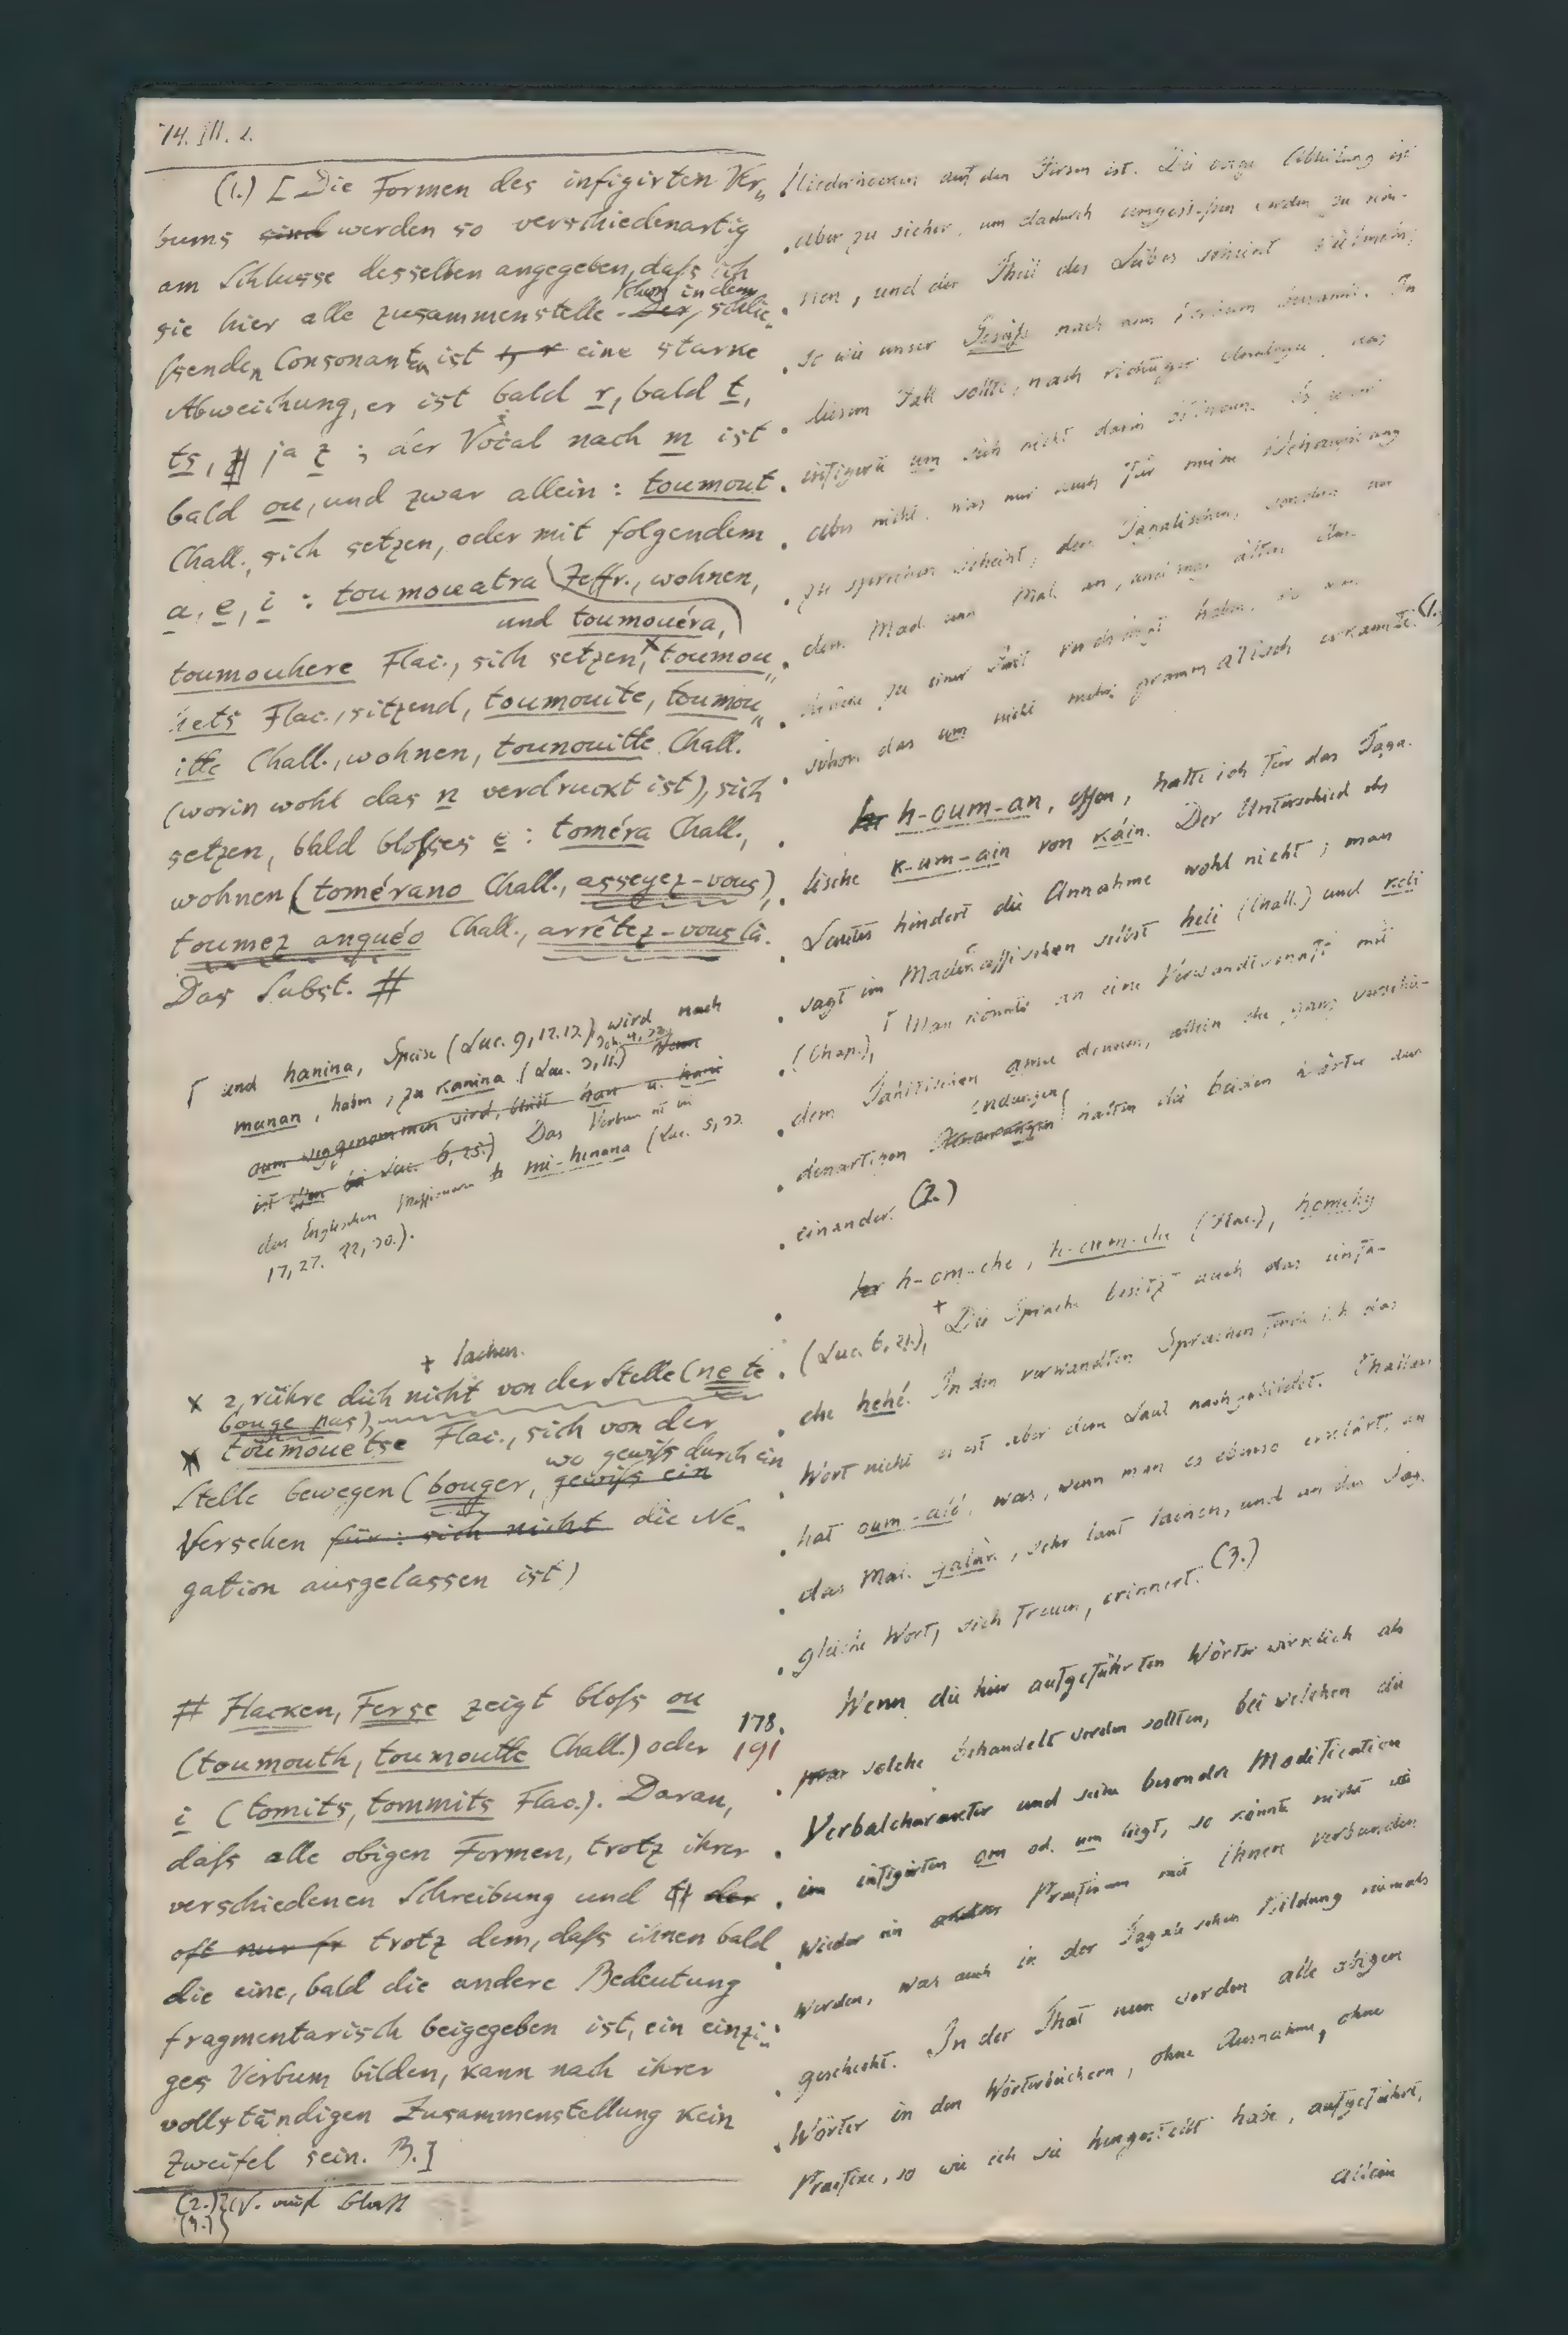 74. III. 2.
(1.) [Die Formen des infigirten Ver„
bums sind werden so verschiedenartig
am Schlusse desselben angegeben, daſs ich
sie hier alle zusammenstelle. Der, Schon in dem schlie„
ſsenden Consonanten ist eine starke
Abweichung, er ist bald r, bald t,
ts, ja z ; der Vocal nach m ist
bald ou, und zwar allein : toumout
Chall., sich setzen, oder mit folgendem
a, e, i : toumouatra Jeffr., wohnen,
und toumouéra,
toumouhere Flac., sich setzen, × toumou„
hets Flac., sitzend, toumouite, toumou„
itte Chall., wohnen, tounouitte Chall.
(worin wohl das n verdruckt ist), sich
setzen, bald bloſses e : toméra Chall.,
wohnen (tomérano Chall., asseyez-vous),
toumez anquéo Chall., arrêtez-vous là.
Das Subst. #
und hanina, Speise (Luc. 9, 12.13.), wird nach
manan, haben, zu kanina (Luc. 3, 11.)
oum weggenommen wird, bleibt han u. hani
ist essen bei Luc. 6, 25.) Das Verbum ist bei
den Englischen Missionaren h mi-hinana (Luc. 5, 33.
17, 27. 22, 30.).
+ lachen.
× z, rühre dich nicht von der Stelle (ne te
bouge pas),
toumouetse Flac., sich von der
Stelle bewegen (bouger, gewiſs ein wo gewiſs durch ein
Versehen für : sich nicht die Ne„
gation ausgelassen ist)
# Hacken, Ferse zeigt bloſs ou
(toumouth, toumoutte Chall.) oder
i (tomits, tommits Flac.). Daran,
daſs alle obigen Formen, trotz ihrer
verschiedenen Schreibung und der
oft nur fr trotz dem, daſs ihnen bald
die eine, bald die andere Bedeutung
fragmentarisch beigegeben ist, ein einzi„
ges Verbum bilden, kann nach ihrer
vollständigen Zusammenstellung kein
Zweifel sein. B.]
(2.) V. auf Blatt
(3.)
178.
191
Niederhocken auf den Fersen ist. Die vorige Ableitung ist
aber zu sicher, um dadurch umgestoſsen werden zu kön-
nen, und der Theil des Leibes scheint vielmehr,
so wie unser Gesäſs nach dem Verbum benannt. In
diesem Fall sollte, nach richtiger Analogie, das
infigirte um sich nicht darin befinden. Es
aber nicht, was mir auch für meine Behauptung
zu sprechen scheint, dem Tagalischen, sondern nur
dem Mad. und Mal. an, und man
zu einer Zeit haben, wo man
schon das um nicht mehr grammatisch erkannte. (1.)
h-oum-an, essen, halte ich für das Taga-
lische k-um-ain von káin. Der Unterschied des
Lautes hindert die Annahme wohl nicht ; man
sagt im Madecassischen selbst heli (Chall.) und keli
(Chap.), Man könnte an eine Verwandtschaft mit
dem Tahitischen amu denken, allein die ganz verschie-
denartigen Endungen halten die beiden Wörter aus
einander. (2.)
h-om-ehe, h-oum-ehe (Flac.), homehy
(Luc. 6, 21.), + Die Sprache besitzt auch das einfa-
che hehé. In den verwandten Sprachen fand ich das
Wort nicht es ist aber dem Laut nachgebildet. Challan
hat oum-alé, was, wenn man es ebenso erklärt, an
das Mal. galak, sehr laut lachen, und an das Tag.
gleiche Wort, sich freuen, erinnert. (3.)
Wenn die hier aufgeführten Wörter wirklich als
solche behandelt werden sollten, bei welchen die
Verbalcharakter und seine besondre Modification
im infigirten om od. um liegt, so könnte nicht
wieder ein andres Praefixum mit ihnen verbunden
werden, was auch in der Tagalischen Bildung niemals
geschieht. In der That nun werden alle obigen
Wörter in den Wörterbüchern, ohne Ausnahme, ohne
Praefixe, so wie ich sie hingestellt habe, aufgeführt,
allein